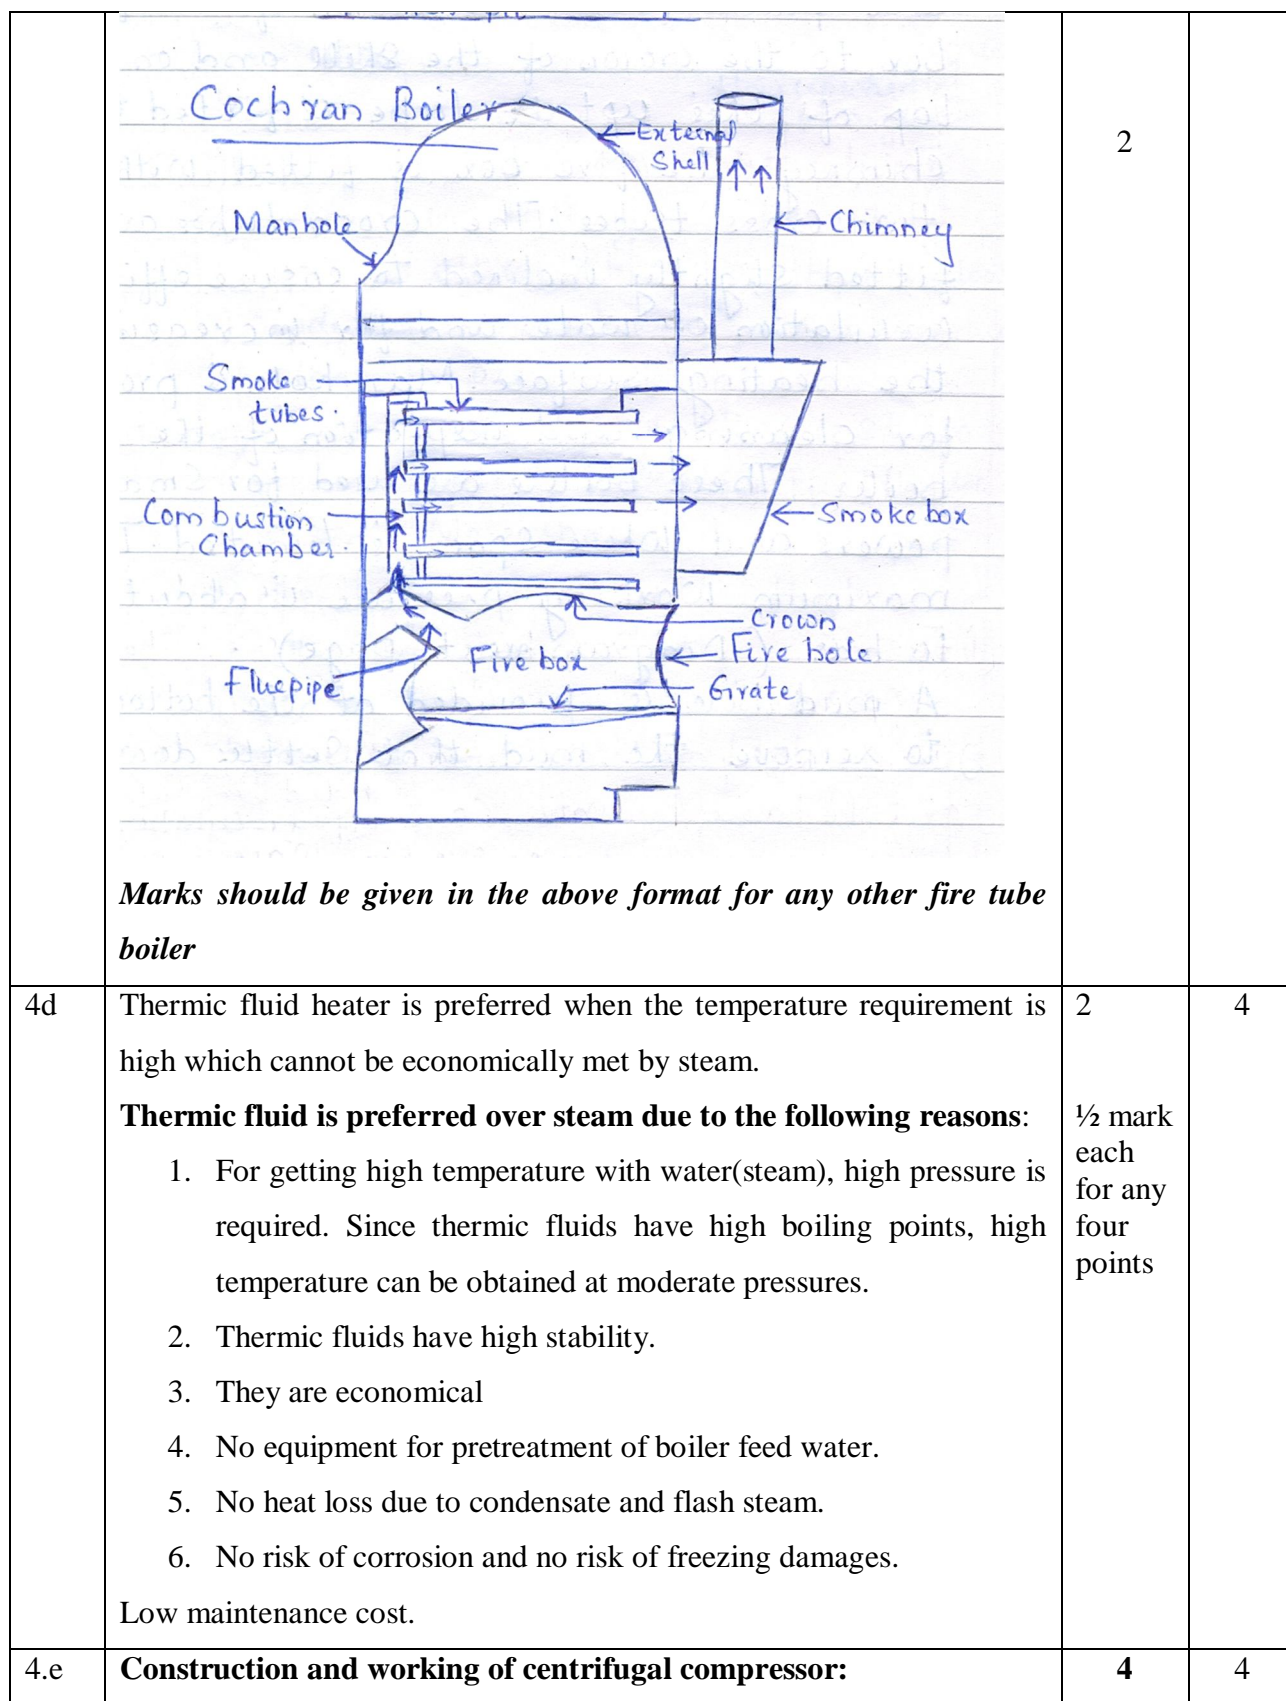 Cochran Boiler
External
Shell
2
Manhole
Chimney
Smoke
tubes.
Combustion
Chamber.
Smoke box
Crown
Fire hole
Fire box
Grate
Fluepipe
Marks should be given in the above format for any other fire tube
boiler
4d Thermic fluid heater is preferred when the temperature requirement is 2 4
high which cannot be economically met by steam.
Thermic fluid is preferred over steam due to the following reasons: ½ mark
each
for any
four
points
1. For getting high temperature with water(steam), high pressure is
required. Since thermic fluids have high boiling points, high
temperature can be obtained at moderate pressures.
2. Thermic fluids have high stability.
3. They are economical
4. No equipment for pretreatment of boiler feed water.
5. No heat loss due to condensate and flash steam.
6. No risk of corrosion and no risk of freezing damages.
Low maintenance cost.
4.e Construction and working of centrifugal compressor: 4 4